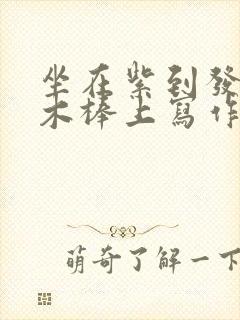 坐在紫到發
木棒上寫作
萌奇了解一下